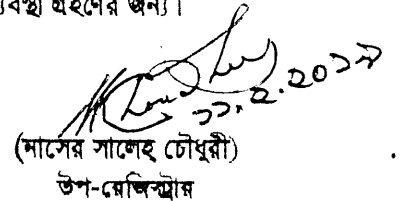 ব্যবস্থা গ্রহণের জন্য।
১১.২.২০১৯
(মাসের সালেহ চৌধুরী)
উপ-রেজিস্ট্রার